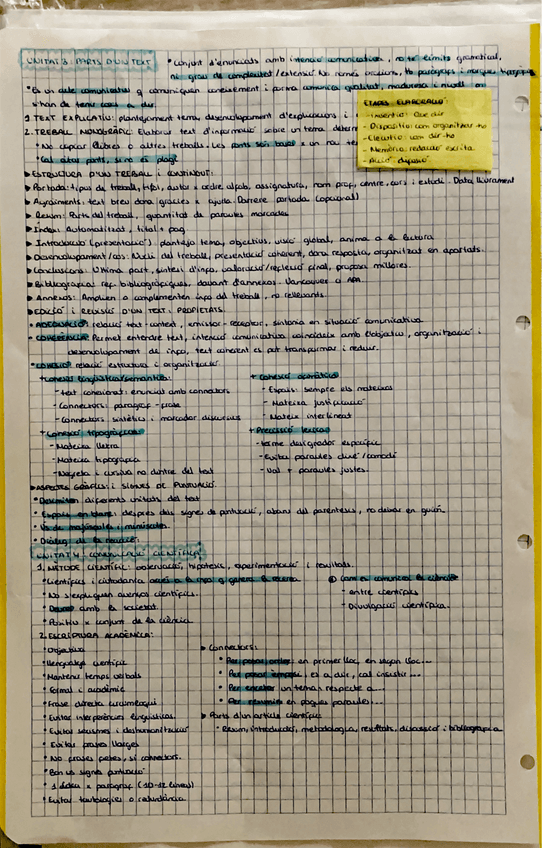 UNITAT 3: PARTS D'UN TEXT
*Conjunt d'enunciats amb intenció comunicativa, no té límits gramatical,
ni grau de complexitat/extensió. No només oracions, tb paràgrafs i marques tipogràf
*És un acte comunicatiu q comuniquen coneixement i forma comunica qualitat, maduresa i nivell en
s'han de tenir coses a dir.
1. TEXT EXPLICATIU: plantejament tema, desenvolupament d'explicacions i
2. TREBALL MONOGRÀFIC: Elaborar text d'informació sobre un tema determ
*No copiar llibres o altres treballs. Les fonts són bases x un nou te
*Cal citar fonts, sino és plagi
ETAPES ELABORACIÓ:
- Inventio: Que dir
- Dispositio: com organitzar-ho
- Elocutio: com dir-ho
- Memòria: redacció escrita
- Acció: difusió
►ESTRUCTURA D'UN TREBALL I CONTINGUT:
►Portada: tipus de treball, títol, autor x ordre alfab, assignatura, nom prof, centre, curs i estudi. Data lliurament
►Agraïments: text breu dona gràcies x ajuda. Darrere portada (opcional)
►Resum: Parts del treball, quantitat de paraules marcades
►Index: Automatitzat, títol + pag
►Introducció (presentació): planteja tema, objectius, visió global, anima a la lectura
►Desenvolupament/cos: Nucli del treball, presentació coherent, dona resposta, organitzat en apartats.
►Conclusions: Última part, síntesi d'info, valoració/reflexió final, proposa millores.
►Bibliografia: ref. bibliogràfiques, davant d'annexos. Vancouver o APA
►Annexos: Amplien o complementen info del treball, no rellevants.
►EDICIÓ I REVISIÓ D'UN TEXT: PROPIETATS.
*ADEQUACIÓ: relació text-context, emissor-receptor, sintonia en situació comunicativa
*COHERÈNCIA: Permet entendre text, intenció comunicativa coincideix amb l'objectiu, organització i
desenvolupament de info, text coherent es pot transformar i reduir.
*COHESIÓ: relació estructura i organització.
+Cohesió lingüística/semàntica:
- text cohesionat: enunciat amb connectors
- Connectors: paràgraf - frase
- Connectors sintàctics i marcador discursius
+Cohesió tipogràfica:
- Mateixa lletra
- Mateixa tipografia
- Negreta i cursiva no dintre del text
- Espais: sempre els mateixos
- Mateixa justificació
- Mateix interlineat
+ Precisió lèxica
- terme designador específic
- Evita paraules clixé/comodí
- Val + paraules justes.
►ASPECTES GRÀFICS I SIGNES DE PUNTUACIÓ.
*Delimiten diferents unitats del text
*Espais en blanc: despres dels signes de puntuació, abans del parèntesis, no deixar en guión.
*Ús de majúscules i minúscules.
UNITAT 4: COMUNICACIÓ CIENTÍFICA
1. MÈTODE CIENTÍFIC: observació, hipòtesis, experimentació i resultats.
*Científics i ciutadania accés a la info q genera la recerca
*No s'expliquen avenços científics.
*Deure amb la societat.
*Positiu x conjunt de la ciència.
① Com es comunica la ciència
- entre científics
- Divulgació científica.
2. ESCRIPTURA ACADÈMICA:
*Objectiva
*Llenguatge científic
*Mantenir temps verbals
*Formal i acadèmic
*Frase directa
*Evitar interferències lingüístiques.
*Evitar sexismes i deshumanització
*Evitar frases llargues
*No frases fetes, sí connectors.
*Bon ús signe puntuació
*1 idea x paràgraf (10-12 línies)
*Evitar tautologies o redundància.
►Connectors:
*Per posar ordre: en primer lloc, en segon lloc...
*Per posar èmfasi, és a dir, cal insistir...
*Per encetar un tema: respecte a...
*Per resumir: en poques paraules...
►Parts d'un article científic
*Resum, introducció, metodologia, resultats, discussió i bibliografia